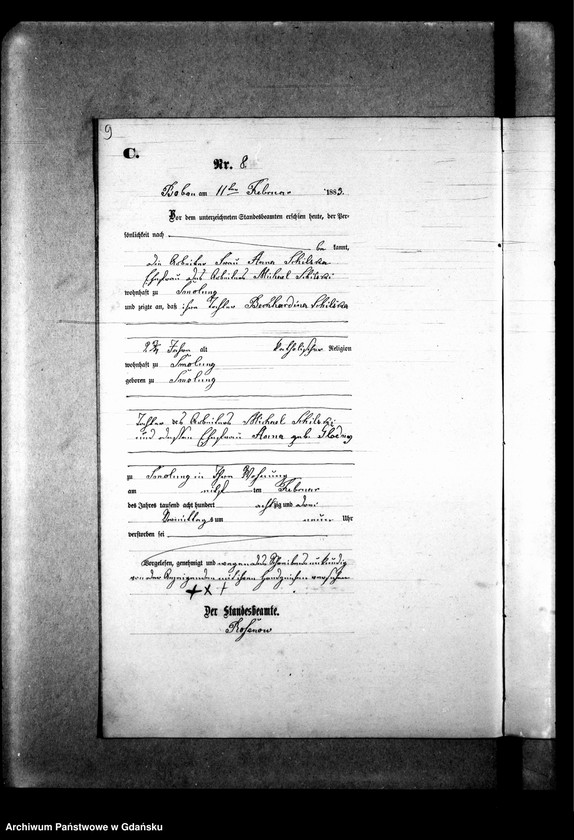 9
C.
Nr. 8
Boban am 11ten Februar 1883.
Vor dem unterzeichneten Standesbeamten erschien heute, der Per-
sönlichkeit nach
be kannt,
die Arbeiter Frau Anna Schilska
Ehefrau des Arbeiters Michael Schilski
wohnhaft zu Smolong
und zeigte an, daß ihre Tochter Bernhardina Schilska
Jahre alt katholischer Religion
wohnhaft zu Smolong
geboren zu Smolong
Tochter des Arbeiters Michael Schilski
und dessen Ehefrau Anna geb.
zu Smolong in Ihrer Wohnung
am ten Februar
des Jahres tausend acht hundert achtzig und drei
Vormittags um neun Uhr
verstorben sei
Vorgelesen, genehmigt und wegen des Schreibens unkundig
von der Anzeigenden mit ihren Handzeichen versehen
+ x +
Der Standesbeamte.
Rohenow
Archiwum Państwowe w Gdańsku